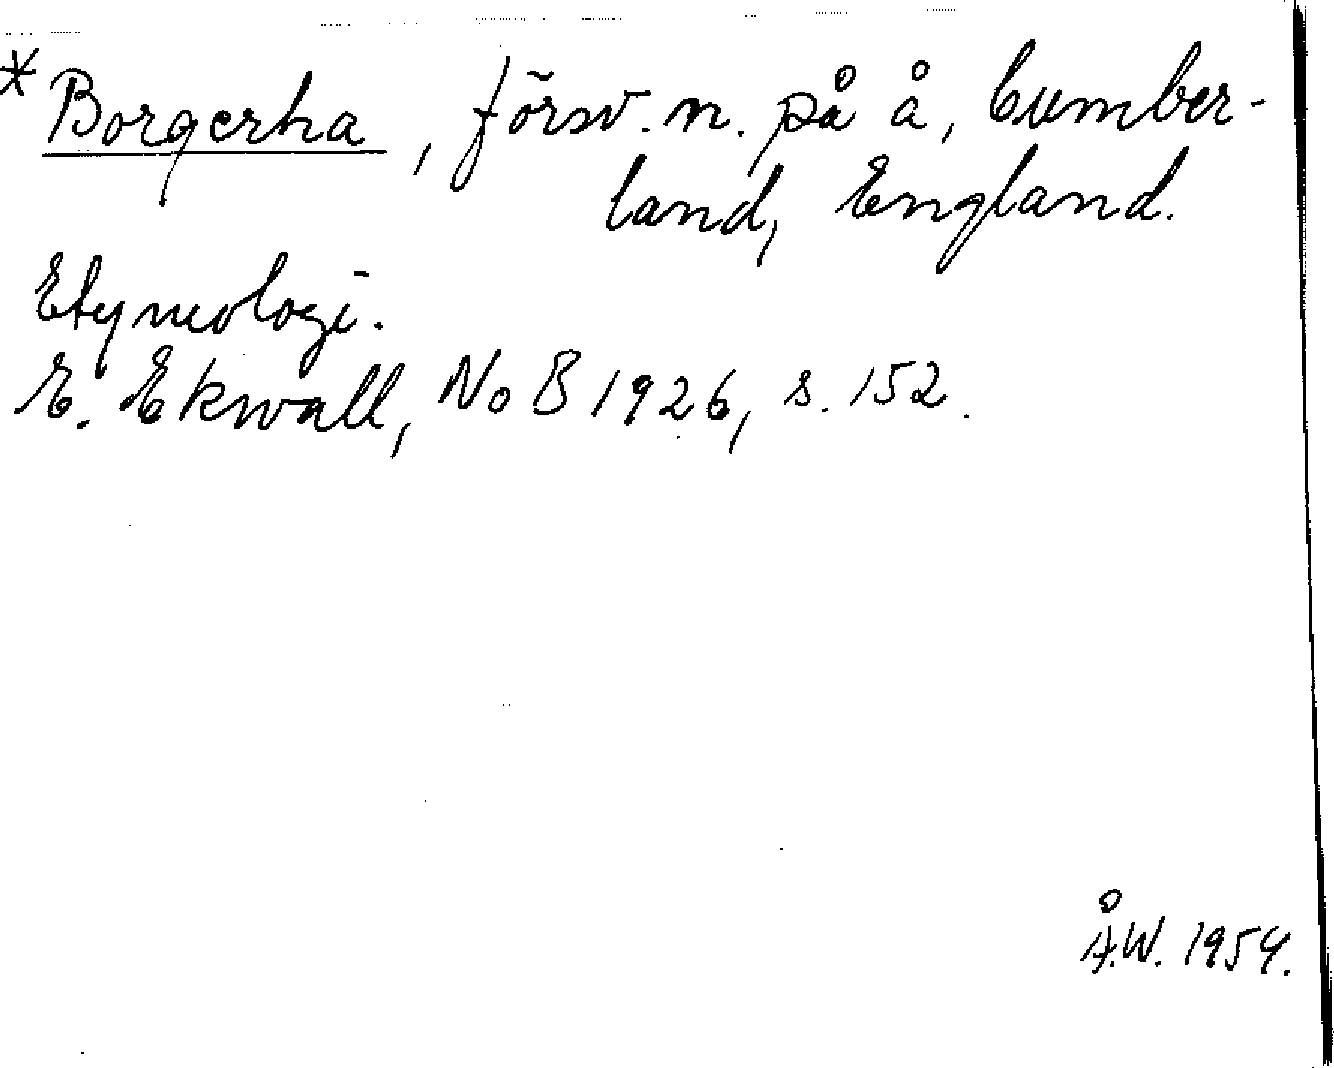 *Borgerha, försv. n. på å, Cumber-
land, England.
Etymologi.
E. Ekwall, NoB 1926, s. 152.
Å.W. 1954.